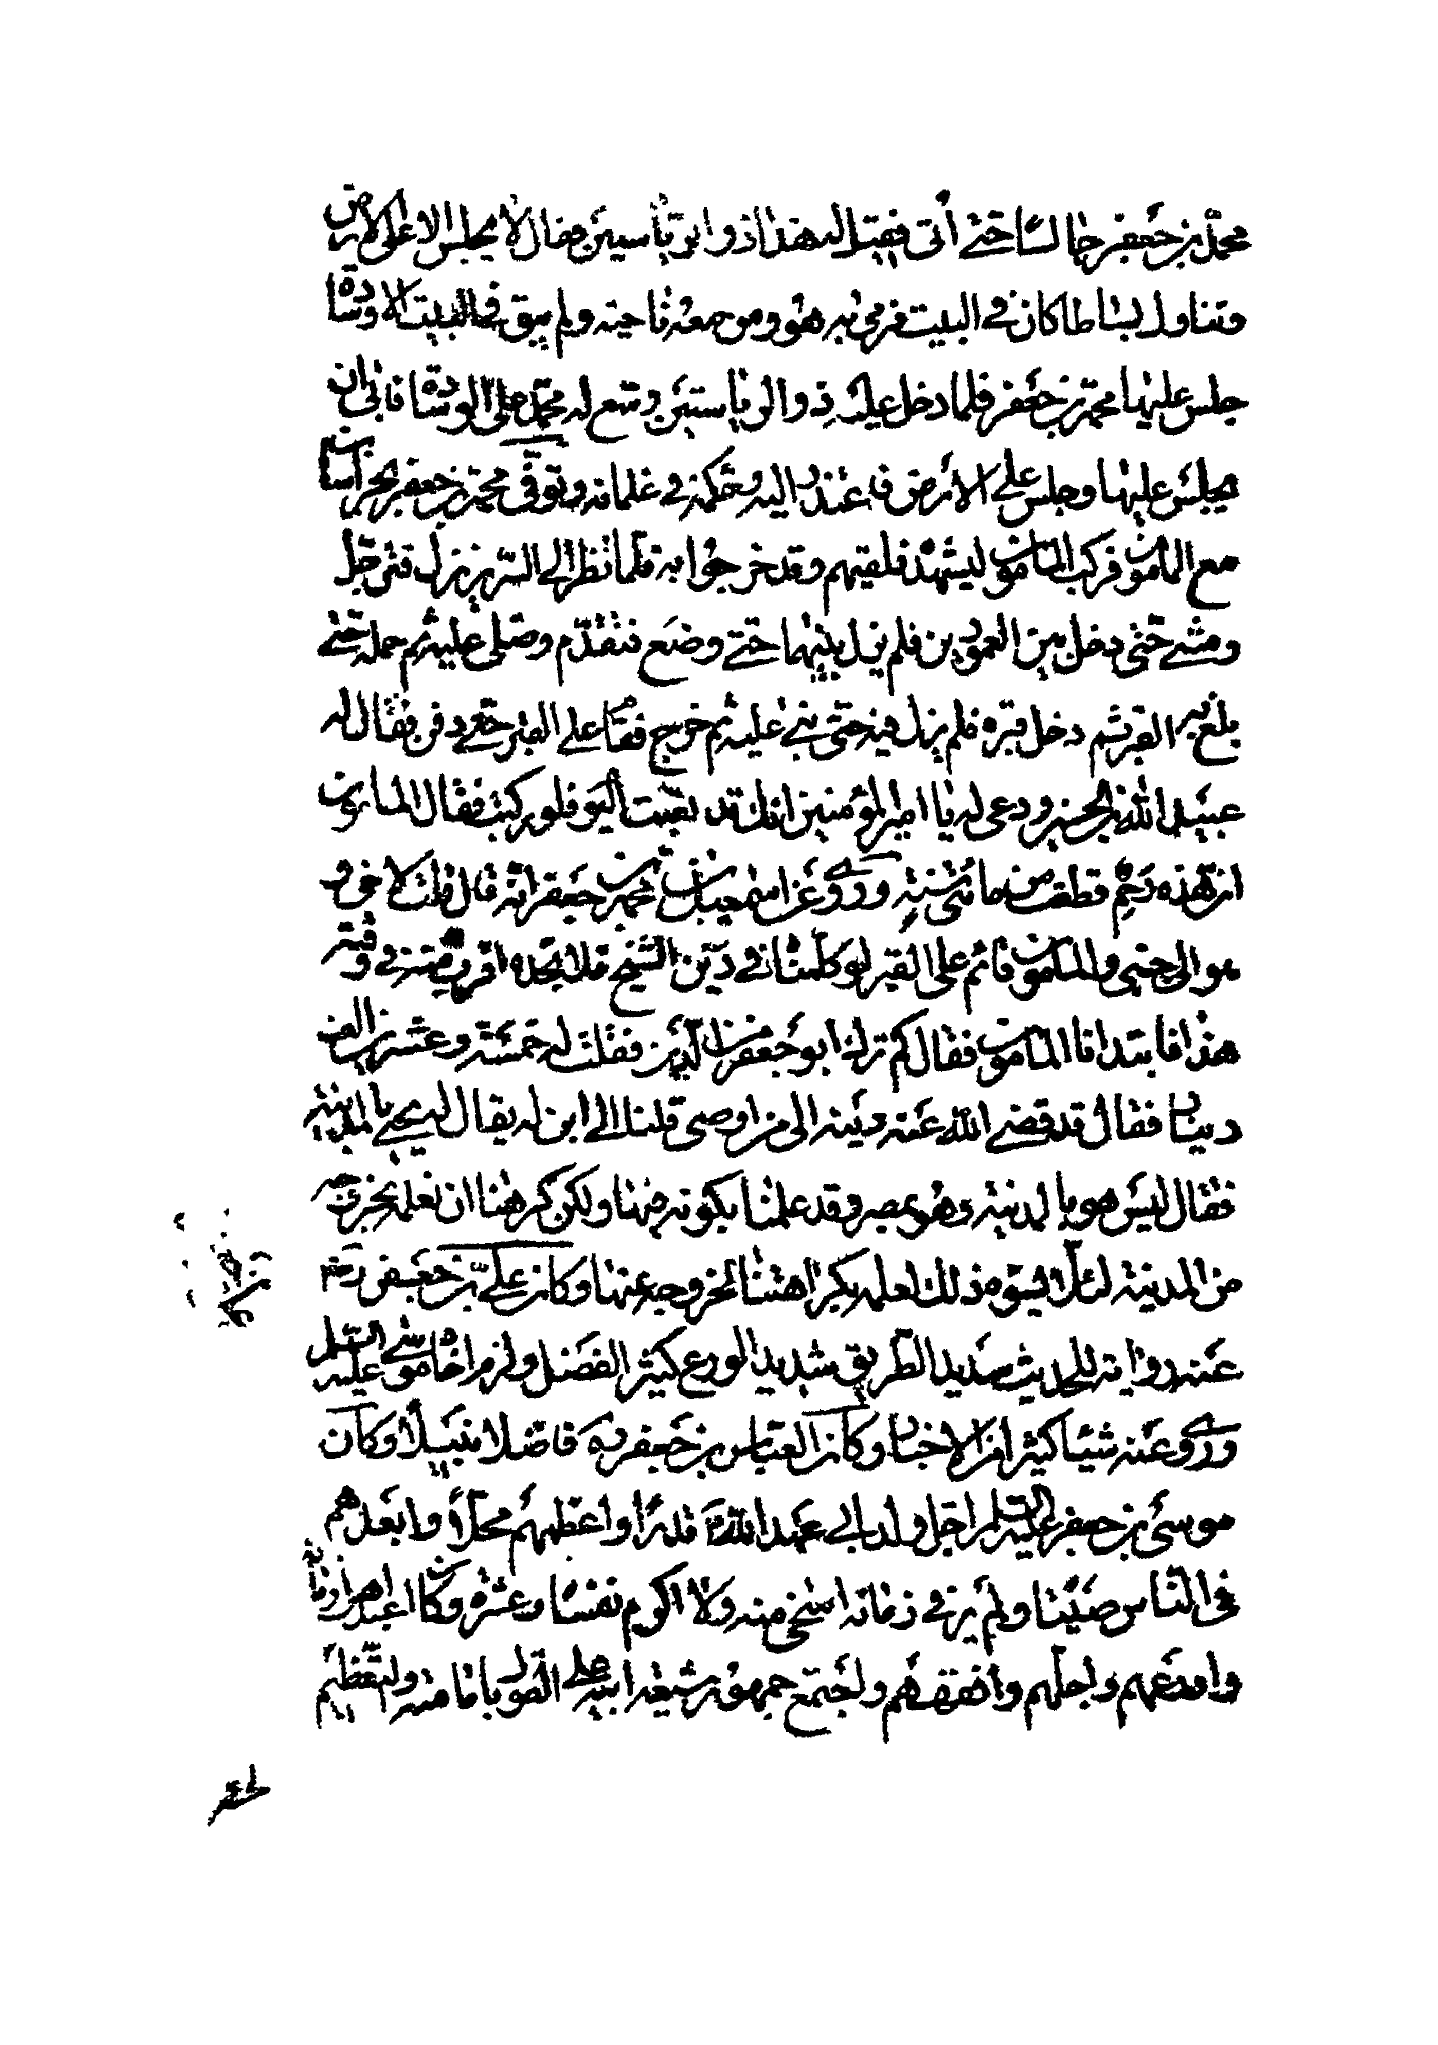 محمد بن جعفر جالسا حتى أتى فقيل له هذا ذو الرياستين فقال لا يجلس الا على الارض
وتناول بساطا كان في البيت فرمى به هو ومن معه ناحيته ولم يبق في البيت الا وسادة
جلس عليها محمد بن جعفر فلما دخل عليه ذو الرياستين وسع له محمد على الوسادة فابى ان
يجلس عليها وجلس على الارض فاعتذر اليه وحكمه في غلمانه وتوفى محمد بن جعفر بخراسان
مع المامون فركب المامون ليشهده فلقيهم وقد خرجوا به فلما نظر الى السرير نزل فترجل
ومشى حتى دخل بين العمودين فلم يزل بينهما حتى وضع فتقدم وصلى عليه ثم حمله حتى
بلغ به القبر ثم دخل قبره فلم يزل فيه حتى بنى عليه ثم خرج فقام على القبر حتى دفن فقال له
عبيد الله بن الحسين ودعى له يا امير المؤمنين انك قد تعبت اليوم فلو ركبت فقال المامون
ان هذه رحم قطعت من مائتي سنة وروى عن اسمعيل بن محمد بن جعفر انه قال قلت لاخي و
هو الى جنبي والمامون قائم على القبر لو كلمناه في دين الشيخ فلا نجده اقرب منه في وقته
هذا فابتدانا المامون فقال كم ترك ابو جعفر من الدين فقلت له خمسة وعشرين الف
دينار فقال قد قضى الله عنه دينه الى من اوصى قلنا الى ابن له يقال له يحيى بالمدينة
فقال ليس هو بالمدينة وهو بمصر وقد علمنا بكونه فيها ولكن كرهنا ان نعلمه بخروجه
من المدينة لئلا يسوءه ذلك لعلمه بكراهتنا لخروجه عنها وكان على بن جعفر رضي
عنه رواية للحديث سديد الطريق شديد الورع كثير الفضل ولزم اخاه موسى عليه السلم
وروى عنه شيئا كثيرا من الاخبار وكان العباس بن جعفر ره فاضلا نبيلا وكان
موسى بن جعفر عليه السلم اجل ولد ابي عبد الله قدرا واعظمهم محلا وابعدهم
في الناس صيتا ولم ير في زمانه اسخى منه ولا اكرم نفسا وعشرة وكان اعبد اهل زمانه
واورعهم واجلهم وافقههم واجتمع جمهور شيعة ابيه على القول بامامته والتعظيم